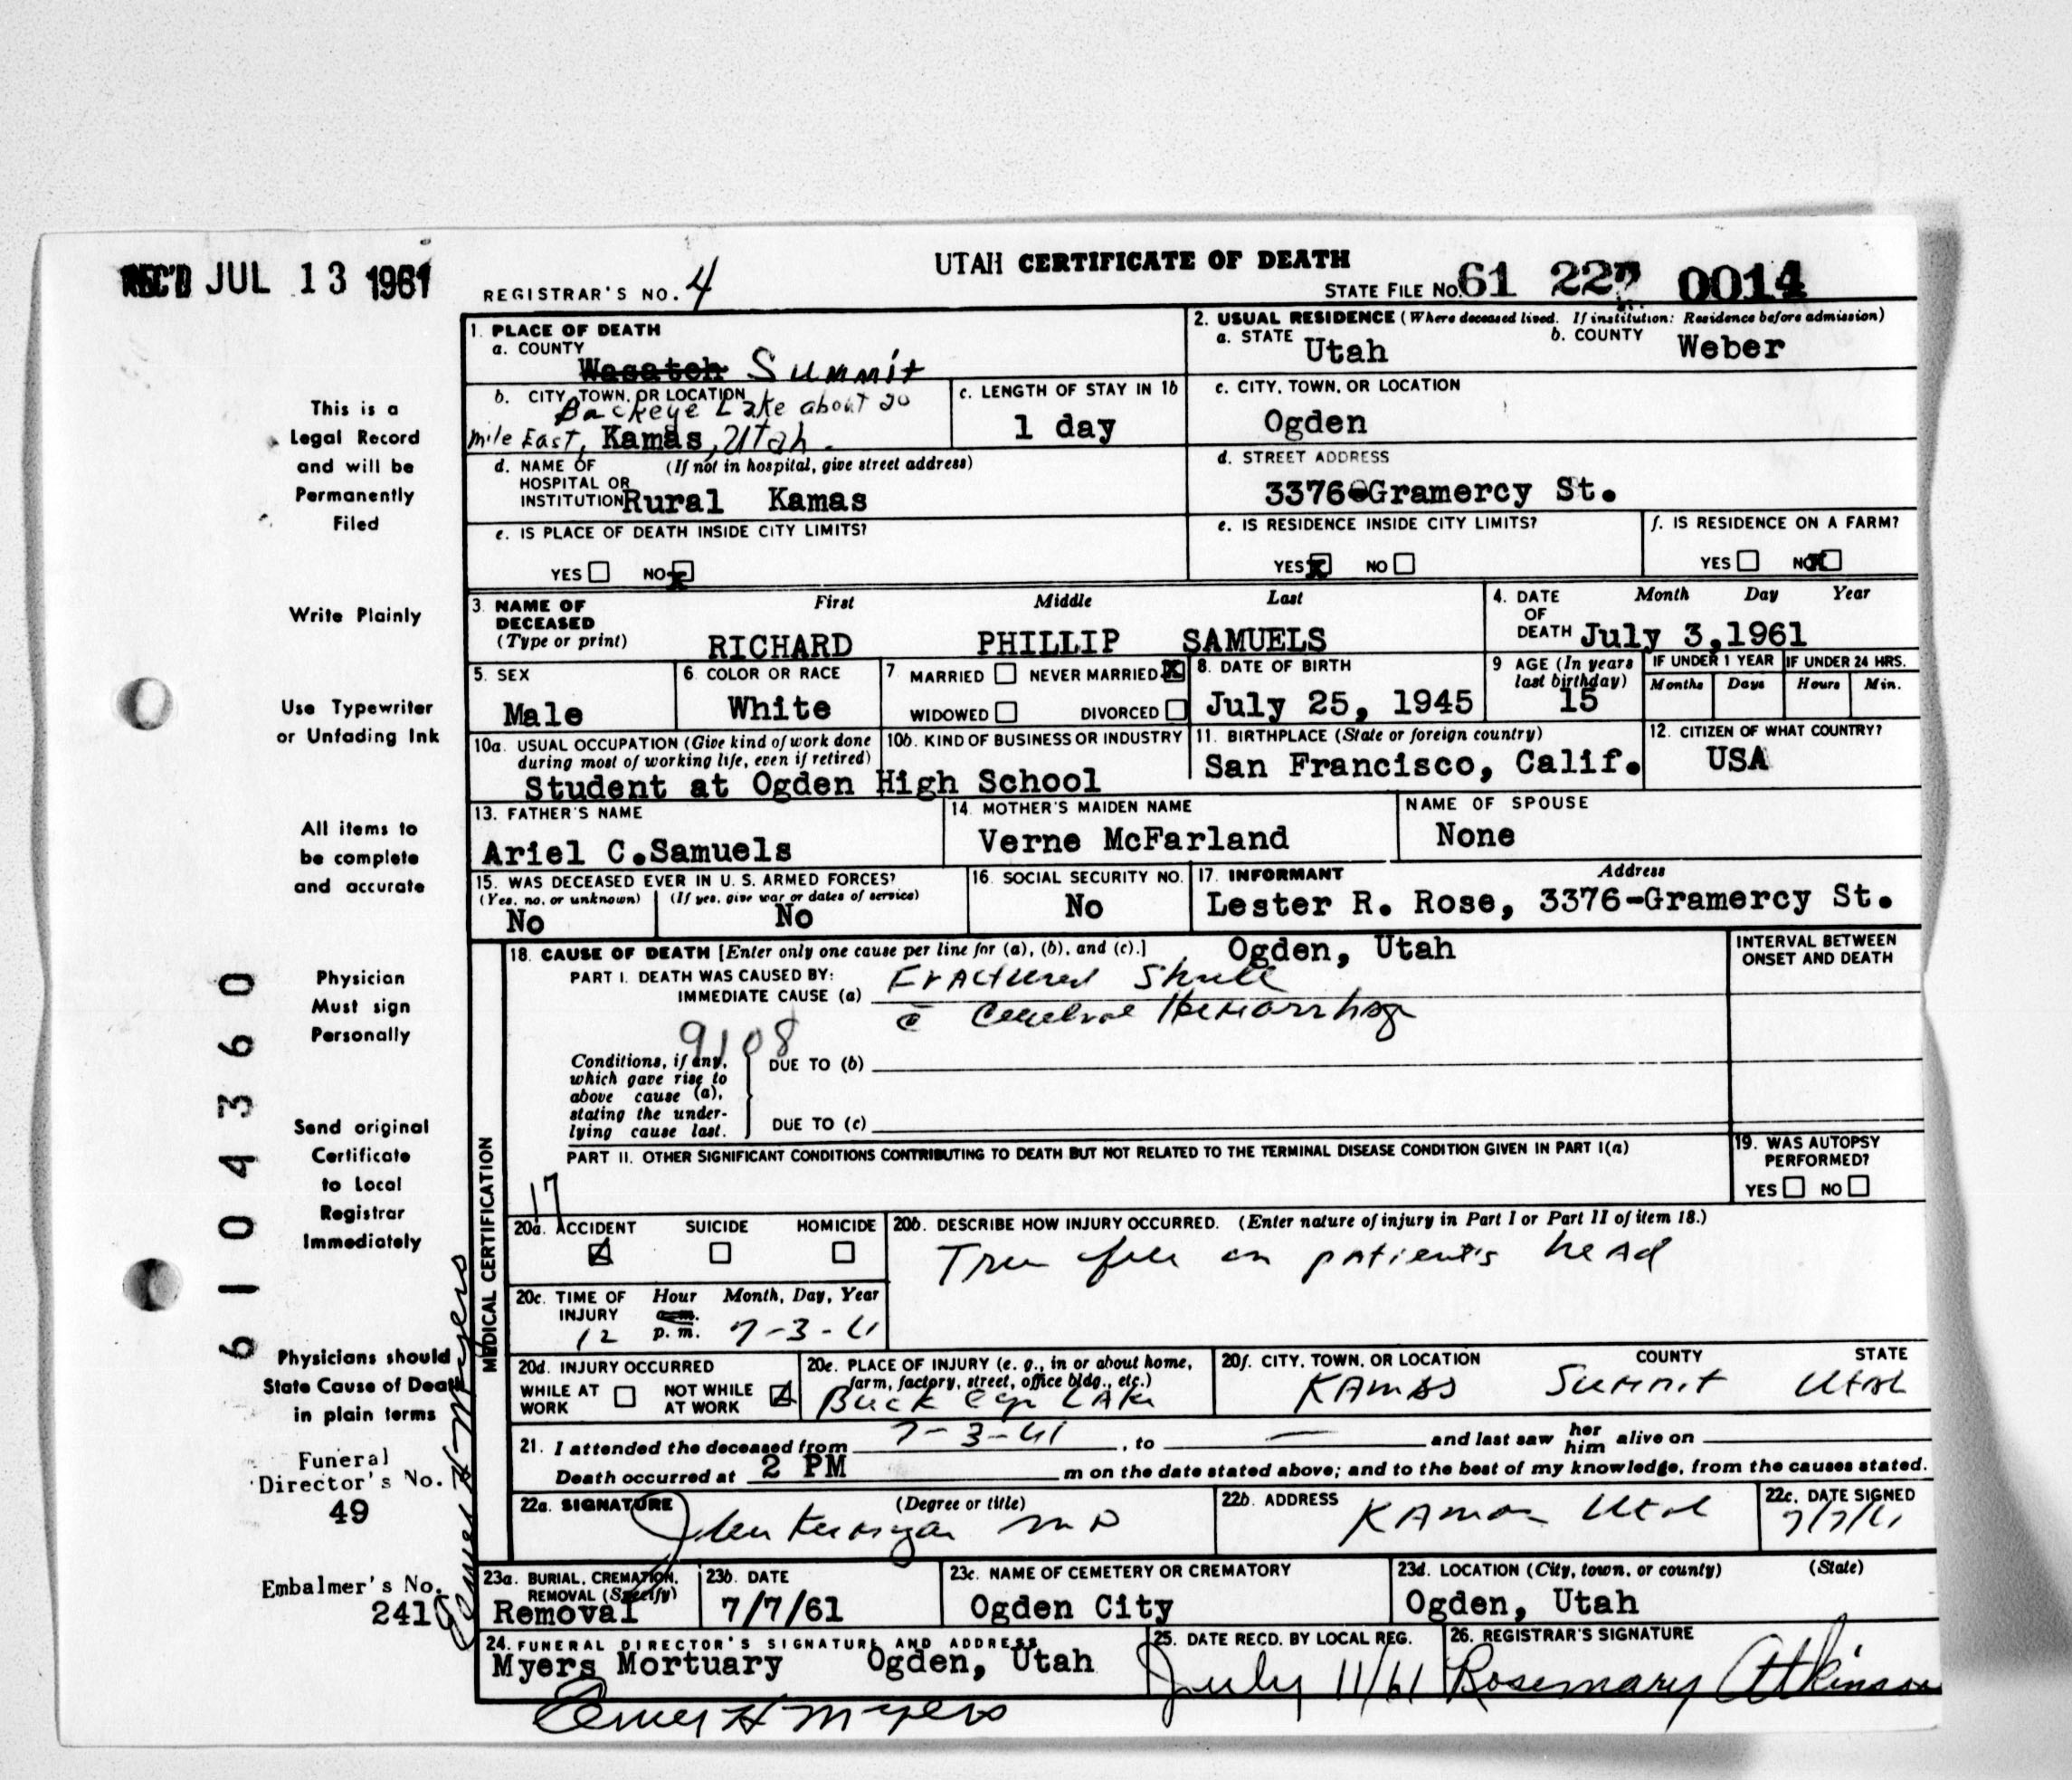 REC'D JUL 13 1961
UTAH CERTIFICATE OF DEATH
REGISTRAR'S NO. 4
STATE FILE NO. 61 22 0014
This is a
Legal Record
and will be
Permanently
Filed
Write Plainly
Use Typewriter
or Unfading Ink
All items to
be complete
and accurate
Physician
Must sign
Personally
Send original
Certificate
to Local
Registrar
Immediately
Physicians should
State Cause of Death
in plain terms
Funeral
Director's No.
49
Embalmer's No.
241
61 04360
1. PLACE OF DEATH
a. COUNTY
Wasatch Summit
b. CITY, TOWN, OR LOCATION
Buckeye Lake about 20
mile East, Kamas, Utah.
c. LENGTH OF STAY IN 1b
1 day
d. NAME OF (If not in hospital, give street address)
HOSPITAL OR
INSTITUTION Rural Kamas
e. IS PLACE OF DEATH INSIDE CITY LIMITS?
YES NO X
2. USUAL RESIDENCE (Where deceased lived. If institution: Residence before admission)
a. STATE Utah b. COUNTY Weber
c. CITY, TOWN, OR LOCATION
Ogden
d. STREET ADDRESS
3376-Gramercy St.
e. IS RESIDENCE INSIDE CITY LIMITS?
YES X NO
f. IS RESIDENCE ON A FARM?
YES NO X
3. NAME OF DECEASED (Type or print)
First Middle Last
RICHARD PHILLIP SAMUELS
4. DATE OF DEATH Month Day Year
July 3,1961
5. SEX
Male
6. COLOR OR RACE
White
7. MARRIED NEVER MARRIED X
WIDOWED DIVORCED
8. DATE OF BIRTH
July 25, 1945
9 AGE (In years last birthday)
15
IF UNDER 1 YEAR IF UNDER 24 HRS.
Months Days Hours Min.
10a. USUAL OCCUPATION (Give kind of work done
during most of working life, even if retired)
10b. KIND OF BUSINESS OR INDUSTRY
Student at Ogden High School
11. BIRTHPLACE (State or foreign country)
San Francisco, Calif.
12. CITIZEN OF WHAT COUNTRY?
USA
13. FATHER'S NAME
Ariel C.Samuels
14. MOTHER'S MAIDEN NAME
Verne McFarland
NAME OF SPOUSE
None
15. WAS DECEASED EVER IN U. S. ARMED FORCES?
(Yes, no, or unknown) (If yes, give war or dates of service)
No No
16. SOCIAL SECURITY NO.
No
17. INFORMANT Address
Lester R. Rose, 3376-Gramercy St.
Ogden, Utah
MEDICAL CERTIFICATION
18. CAUSE OF DEATH [Enter only one cause per line for (a), (b), and (c).]
INTERVAL BETWEEN
ONSET AND DEATH
PART I. DEATH WAS CAUSED BY:
IMMEDIATE CAUSE (a) Fractured Skull
c̄ Cerebral Hemorrhage
9108
Conditions, if any,
which gave rise to
above cause (a),
stating the under-
lying cause last.
DUE TO (b)
DUE TO (c)
PART II. OTHER SIGNIFICANT CONDITIONS CONTRIBUTING TO DEATH BUT NOT RELATED TO THE TERMINAL DISEASE CONDITION GIVEN IN PART I(a)
19. WAS AUTOPSY
PERFORMED?
YES NO
17
20a. ACCIDENT SUICIDE HOMICIDE
20b. DESCRIBE HOW INJURY OCCURRED. (Enter nature of injury in Part I or Part II of item 18.)
Tree fell on patient's head
20c. TIME OF INJURY Hour Month, Day, Year
12 a.m. p.m. 7-3-61
20d. INJURY OCCURRED
WHILE AT WORK NOT WHILE AT WORK
20e. PLACE OF INJURY (e. g., in or about home,
farm, factory, street, office bldg., etc.)
Buck eye LAke
20f. CITY, TOWN, OR LOCATION COUNTY STATE
KAMAS Summit Utah
21. I attended the deceased from 7-3-61, to — and last saw her him alive on
Death occurred at 2 PM m on the date stated above; and to the best of my knowledge, from the causes stated.
22a. SIGNATURE (Degree or title)
M D
22b. ADDRESS
KAMAS Utah
22c. DATE SIGNED
7/7/61
23a. BURIAL, CREMATION,
REMOVAL (Specify)
Removal
23b. DATE
7/7/61
23c. NAME OF CEMETERY OR CREMATORY
Ogden City
23d. LOCATION (City, town, or county) (State)
Ogden, Utah
24. FUNERAL DIRECTOR'S SIGNATURE AND ADDRESS
Myers Mortuary Ogden, Utah
25. DATE RECD. BY LOCAL REG.
July 11/61
26. REGISTRAR'S SIGNATURE
Rosemary Atkinson
H Myers
H Myers